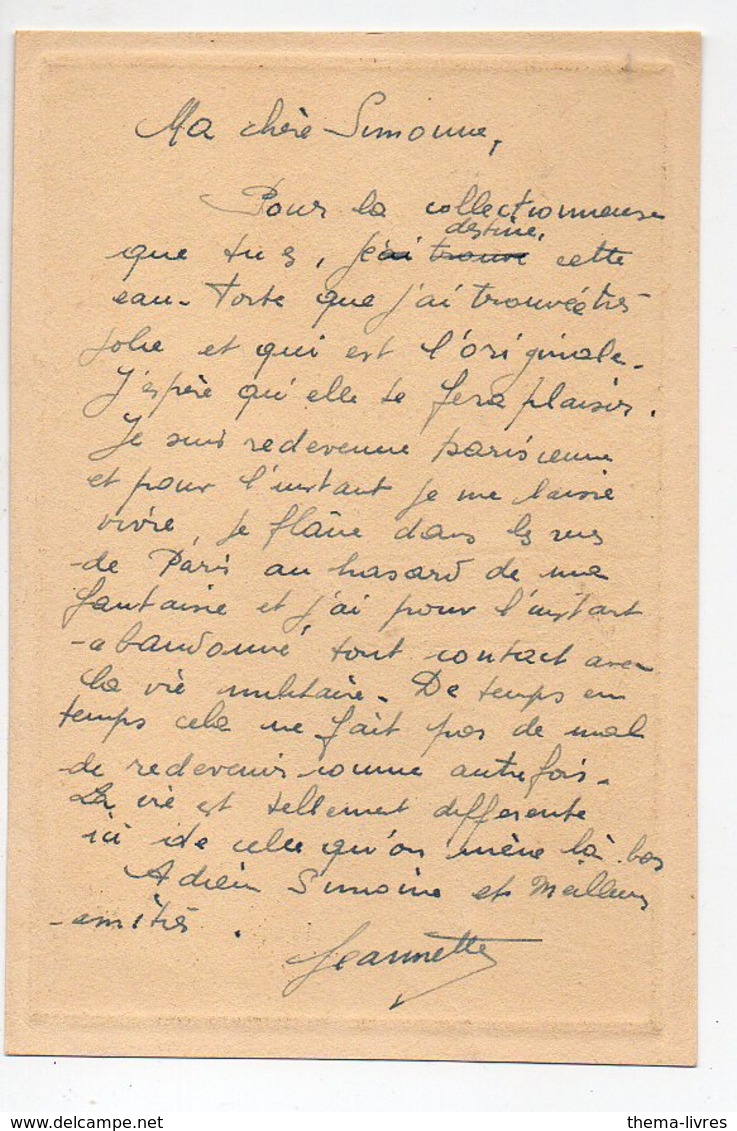 Ma chère Simonne,
Pour la collectionneuse
que tu es, j'ai trouvé destiné, cette
eau-forte que j'ai trouvée très
jolie et qui est l'originale.
J'espère qu'elle te fera plaisir.
Je suis redevenue parisienne
et pour l'instant je me laisse
vivre, je flâne dans les rues
de Paris au hasard de ma
fantaisie et j'ai pour l'instant
abandonné tout contact avec
la vie militaire. De temps en
temps cela ne fait pas de mal
de redevenir comme autrefois.
La vie est tellement differente
ici de celle qu'on mène là bas
Adieu Simone et Meilleures
amitiés.
Jeannette
thema-livres